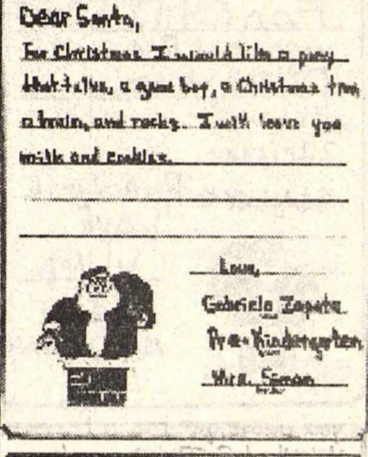 Dear Santa,
For Christmas I would like a pony
that talks, a game boy, a Christmas tree
a train, and rocks. I will leave you
milk and cookies.
Love,
Gabriela Zapata
Pre-Kindergarten
Mrs. Simon